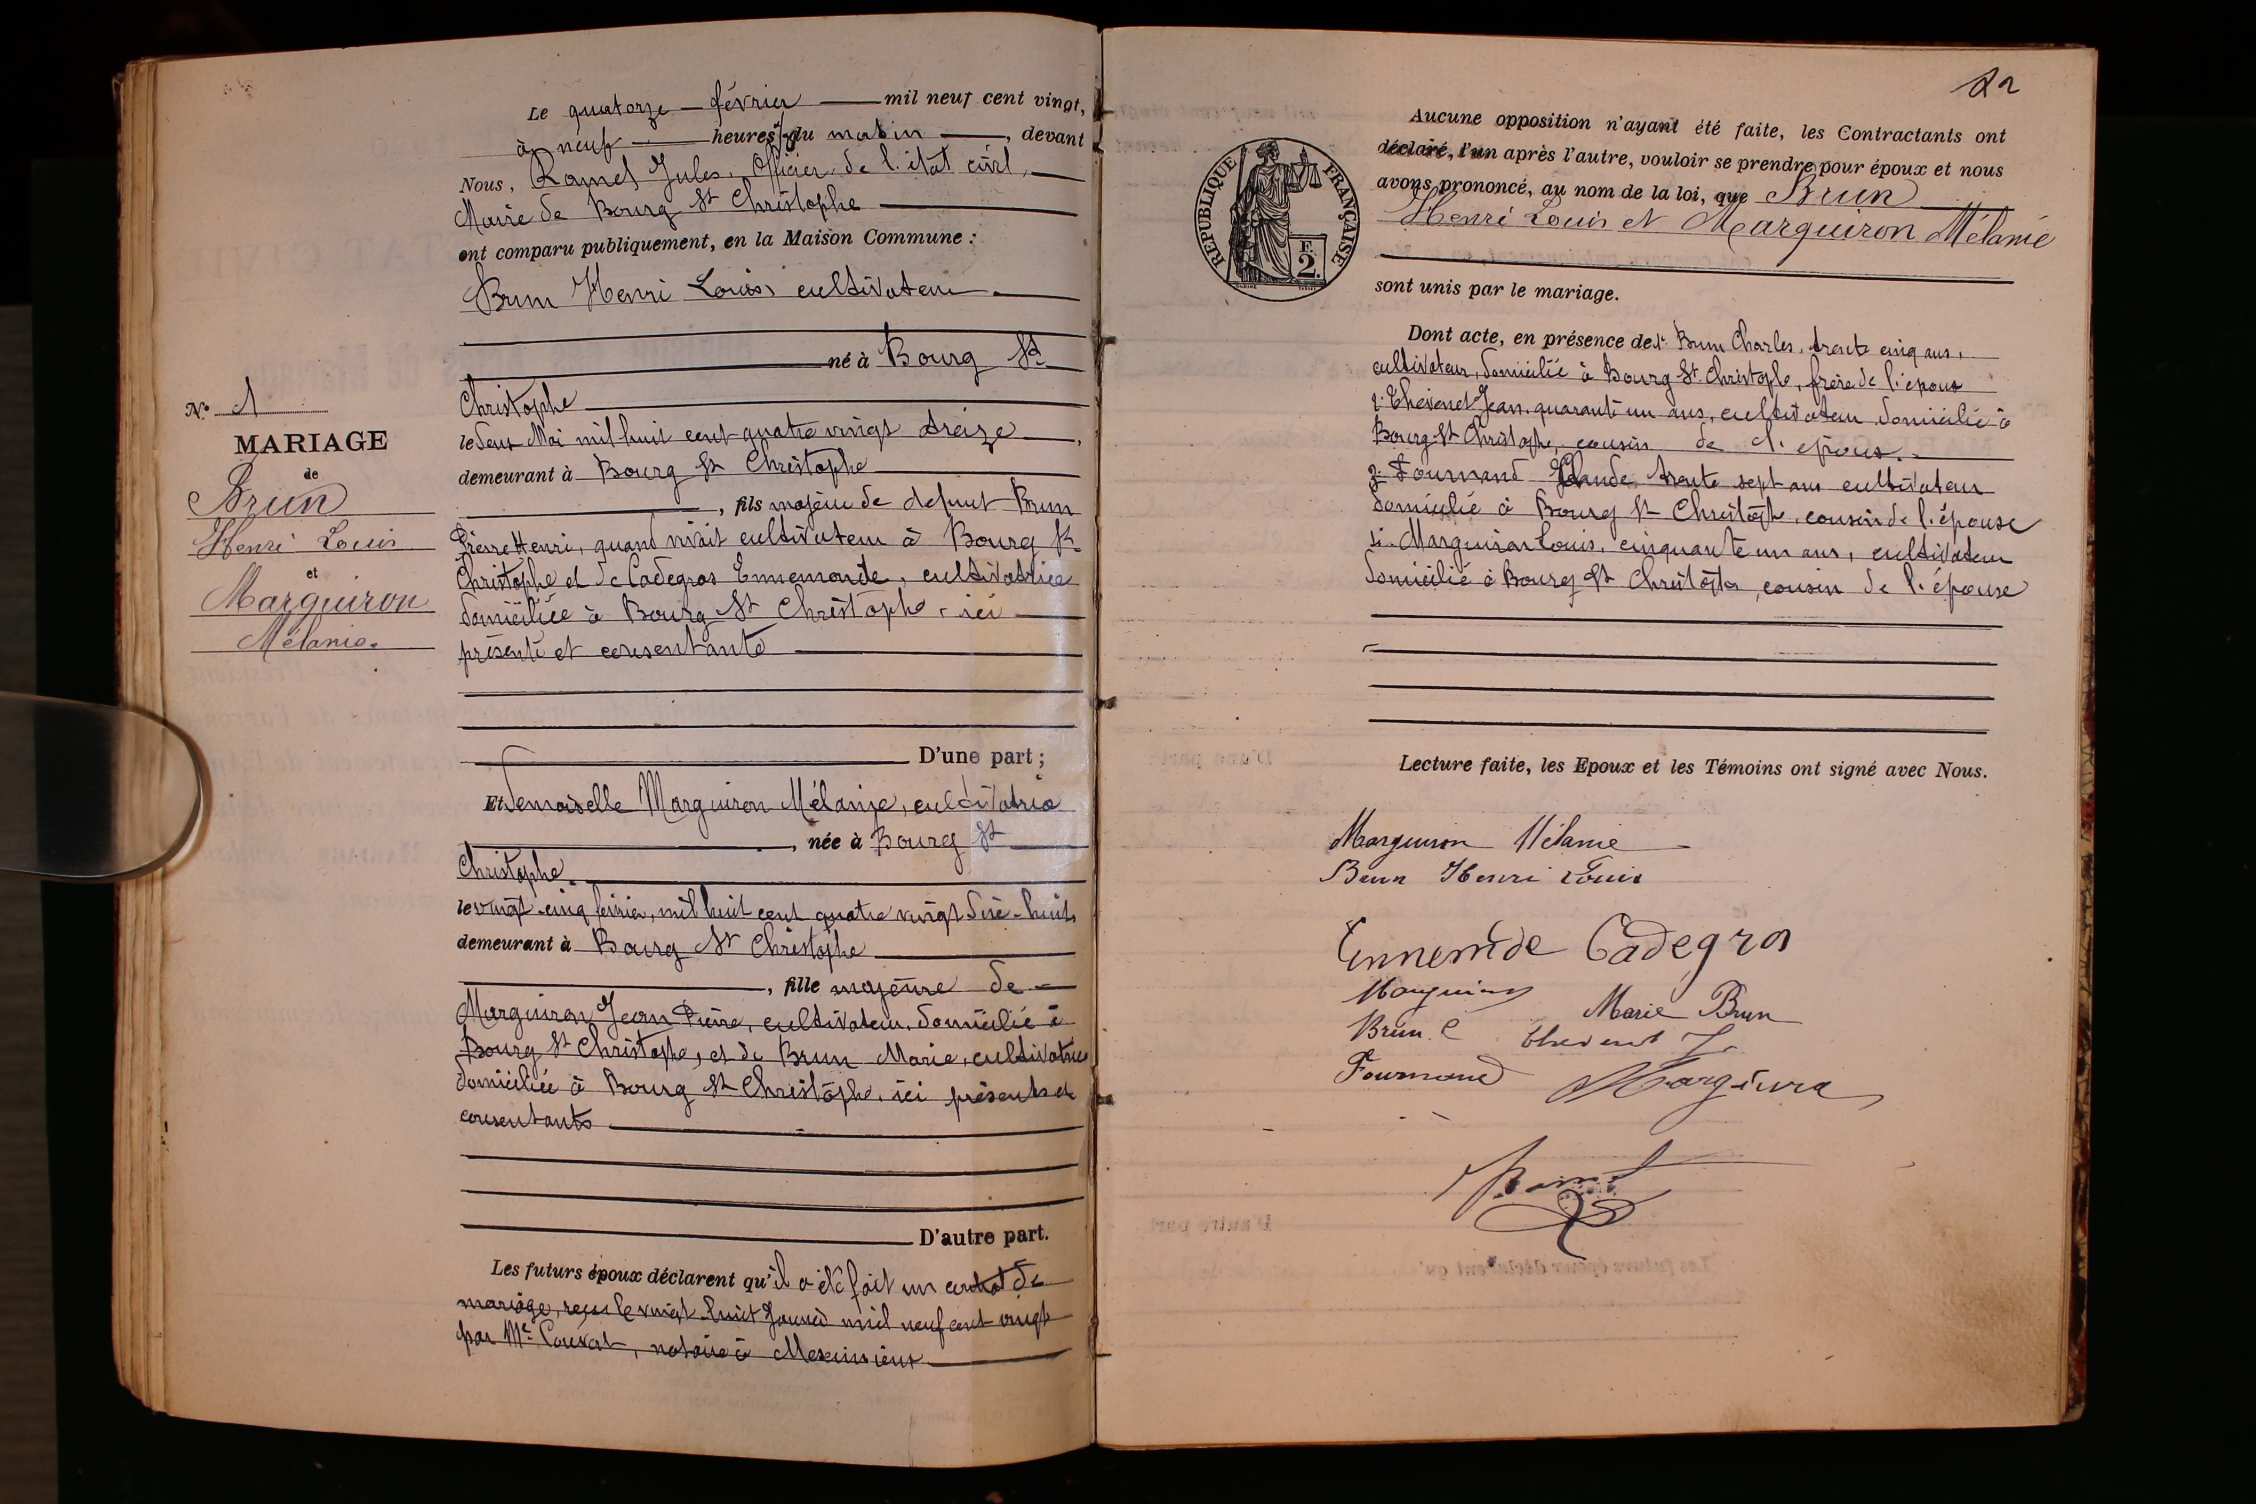 Le quatorze février mil neuf cent vingt,
à neuf heures ½ du matin, devant
Nous, Ramel Jules, Officier de l'état civil,
Maire de Bourg St Christophe
ont comparu publiquement, en la Maison Commune :
Brun Henri Louis, cultivateur
né à Bourg St
Christophe
le deux Mai mil huit cent quatre vingt treize,
demeurant à Bourg St Christophe
, fils majeur de defunt Brun
Pierre Henri, quand vivait cultivateur à Bourg St
Christophe et de Cadegros Ennemonde, cultivatrice
domiciliée à Bourg St Christophe, ici
présente et consentante
D'une part ;
Et Demoiselle Marguiron Mélanie, cultivatrice
, née à Bourg St
Christophe
le vingt-cinq février, mil huit cent quatre vingt dix-huit,
demeurant à Bourg St Christophe
, fille majeure de
Marguiron Jean Pierre, cultivateur, domicilié à
Bourg St Christophe, et de Brun Marie, cultivatrice
domiciliée à Bourg St Christophe, ici présents et
consentants
D'autre part.
Les futurs époux déclarent qu'il a été fait un contrat de
mariage, reçu le vingt huit Janvier mil neuf cent vingt
par Me Couvat, notaire à Meximieux
No 1
MARIAGE
de
Brun
Henri Louis
et
Marguiron
Mélanie.
22
REPUBLIQUE FRANÇAISE
F.
2.
Aucune opposition n'ayant été faite, les Contractants ont
déclaré, l'un après l'autre, vouloir se prendre pour époux et nous
avons prononcé, au nom de la loi, que Brun
Henri Louis et Marguiron Mélanie
sont unis par le mariage.
Dont acte, en présence de 1. Brun Charles, trente cinq ans,
cultivateur, domicilié à Bourg-St-Christophe, frère de l'époux
2. Thevenet Jean, quarante un ans, cultivateur domicilié à
Bourg-St Christophe, cousin de l'époux.
3. Fournand Claude trente sept ans cultivateur
domicilié à Bourg St Christophe, cousin de l'épouse
Marguiron Louis, cinquante un ans, cultivateur
domicilié à Bourg St Christophe, cousin de l'épouse
Lecture faite, les Epoux et les Témoins ont signé avec Nous.
Marguiron Mélanie
Brun Henri Louis
Ennemde Cadegros
Marguiron
Marie Brun
Brun C
Thevenet J
Fournand
Ramel